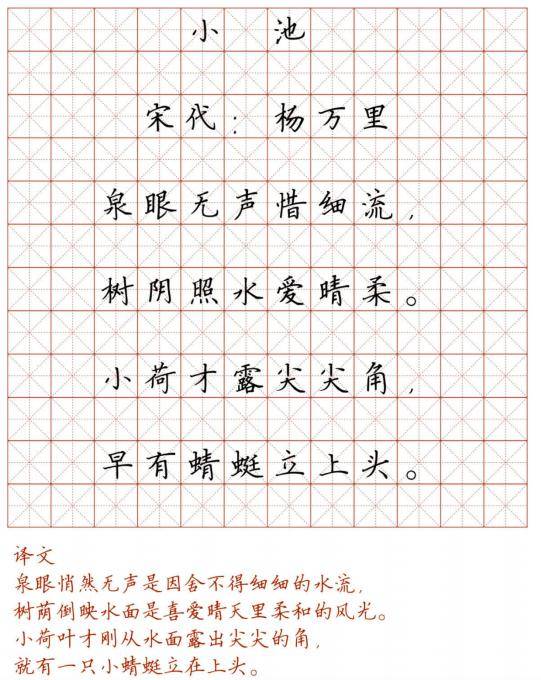 小 池
宋代：杨万里
泉眼无声惜细流，
树阴照水爱晴柔。
小荷才露尖尖角，
早有蜻蜓立上头。
译文
泉眼悄然无声是因舍不得细细的水流，
树荫倒映水面是喜爱晴天里柔和的风光。
小荷叶才刚从水面露出尖尖的角，
就有一只小蜻蜓立在上头。